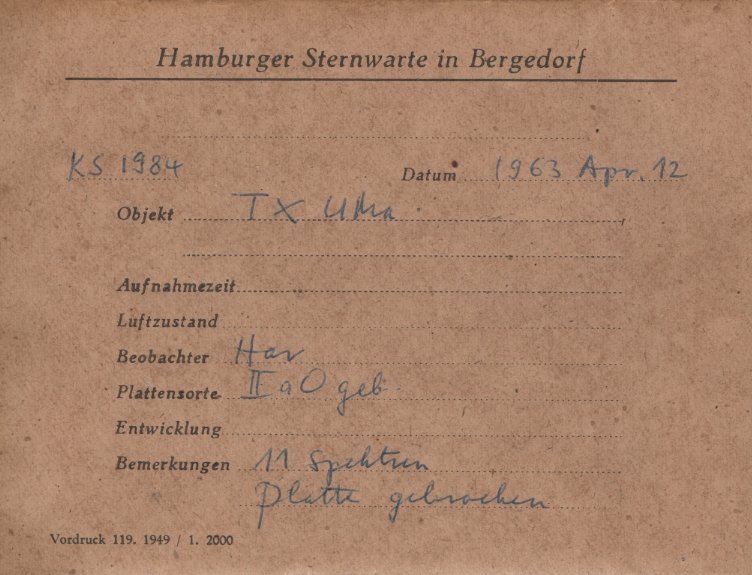 Hamburger Sternwarte in Bergedorf
KS 1984 Datum 1963 Apr. 12
Objekt TX UMa
Aufnahmezeit
Luftzustand
Beobachter Hav
Plattensorte II a O geb.
Entwicklung
Bemerkungen 11 Spektren
Platte gebrochen
Vordruck 119. 1949 / 1. 2000